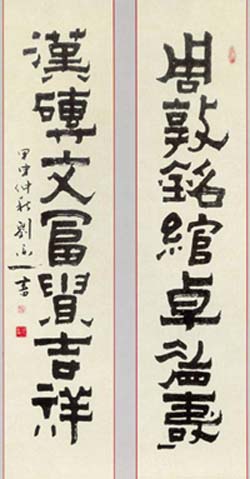 周敦銘綰卓壽
漢磚文富貴吉祥
甲申仲秋劉一書